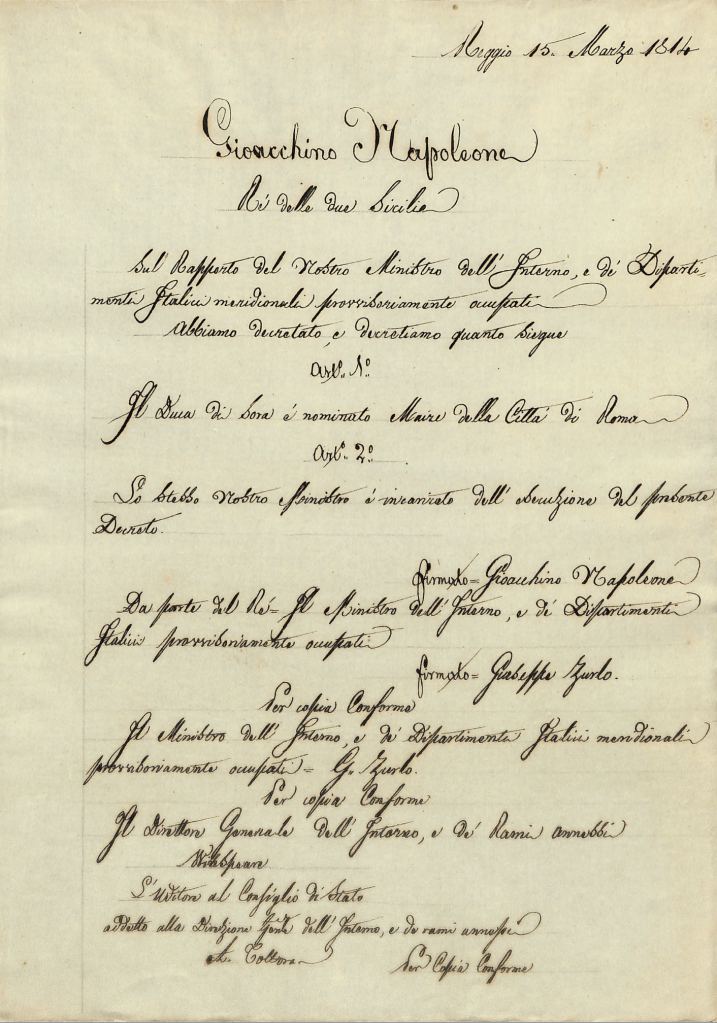 Reggio 15. Marzo 1814
Gioacchino Napoleone
Ré delle due Sicilie
Sul Rapporto del Nostro Ministro dell' Interno, e de' Diparti-
menti Italici meridionali provvisoriamente occupati
Abbiamo decretato, e decretiamo quanto siegue
Art.º 1.º
Il Duca di Sora é nominato Maire della Città di Roma
Art.º 2.º
Lo stesso Nostro Ministro é incaricato dell' esecuzione del presente
Decreto.
firmato = Gioacchino Napoleone
Da parte del Ré = Il Ministro dell' Interno, e de' Dipartimenti
Italici provvisoriamente occupati
firmato = Giuseppe Zurlo.
Per copia Conforme
Il Ministro dell' Interno, e de' Dipartimenti Italici meridionali
provvisoriamente occupati = G. Zurlo.
Per copia Conforme
Il Direttore Generale dell' Interno, e de' Rami annessi
Winspeare
L'Uditore al Consiglio di Stato
addetto alla Direzione Gen.le dell' Interno, e de rami annessi
A.
Per Copia Conforme